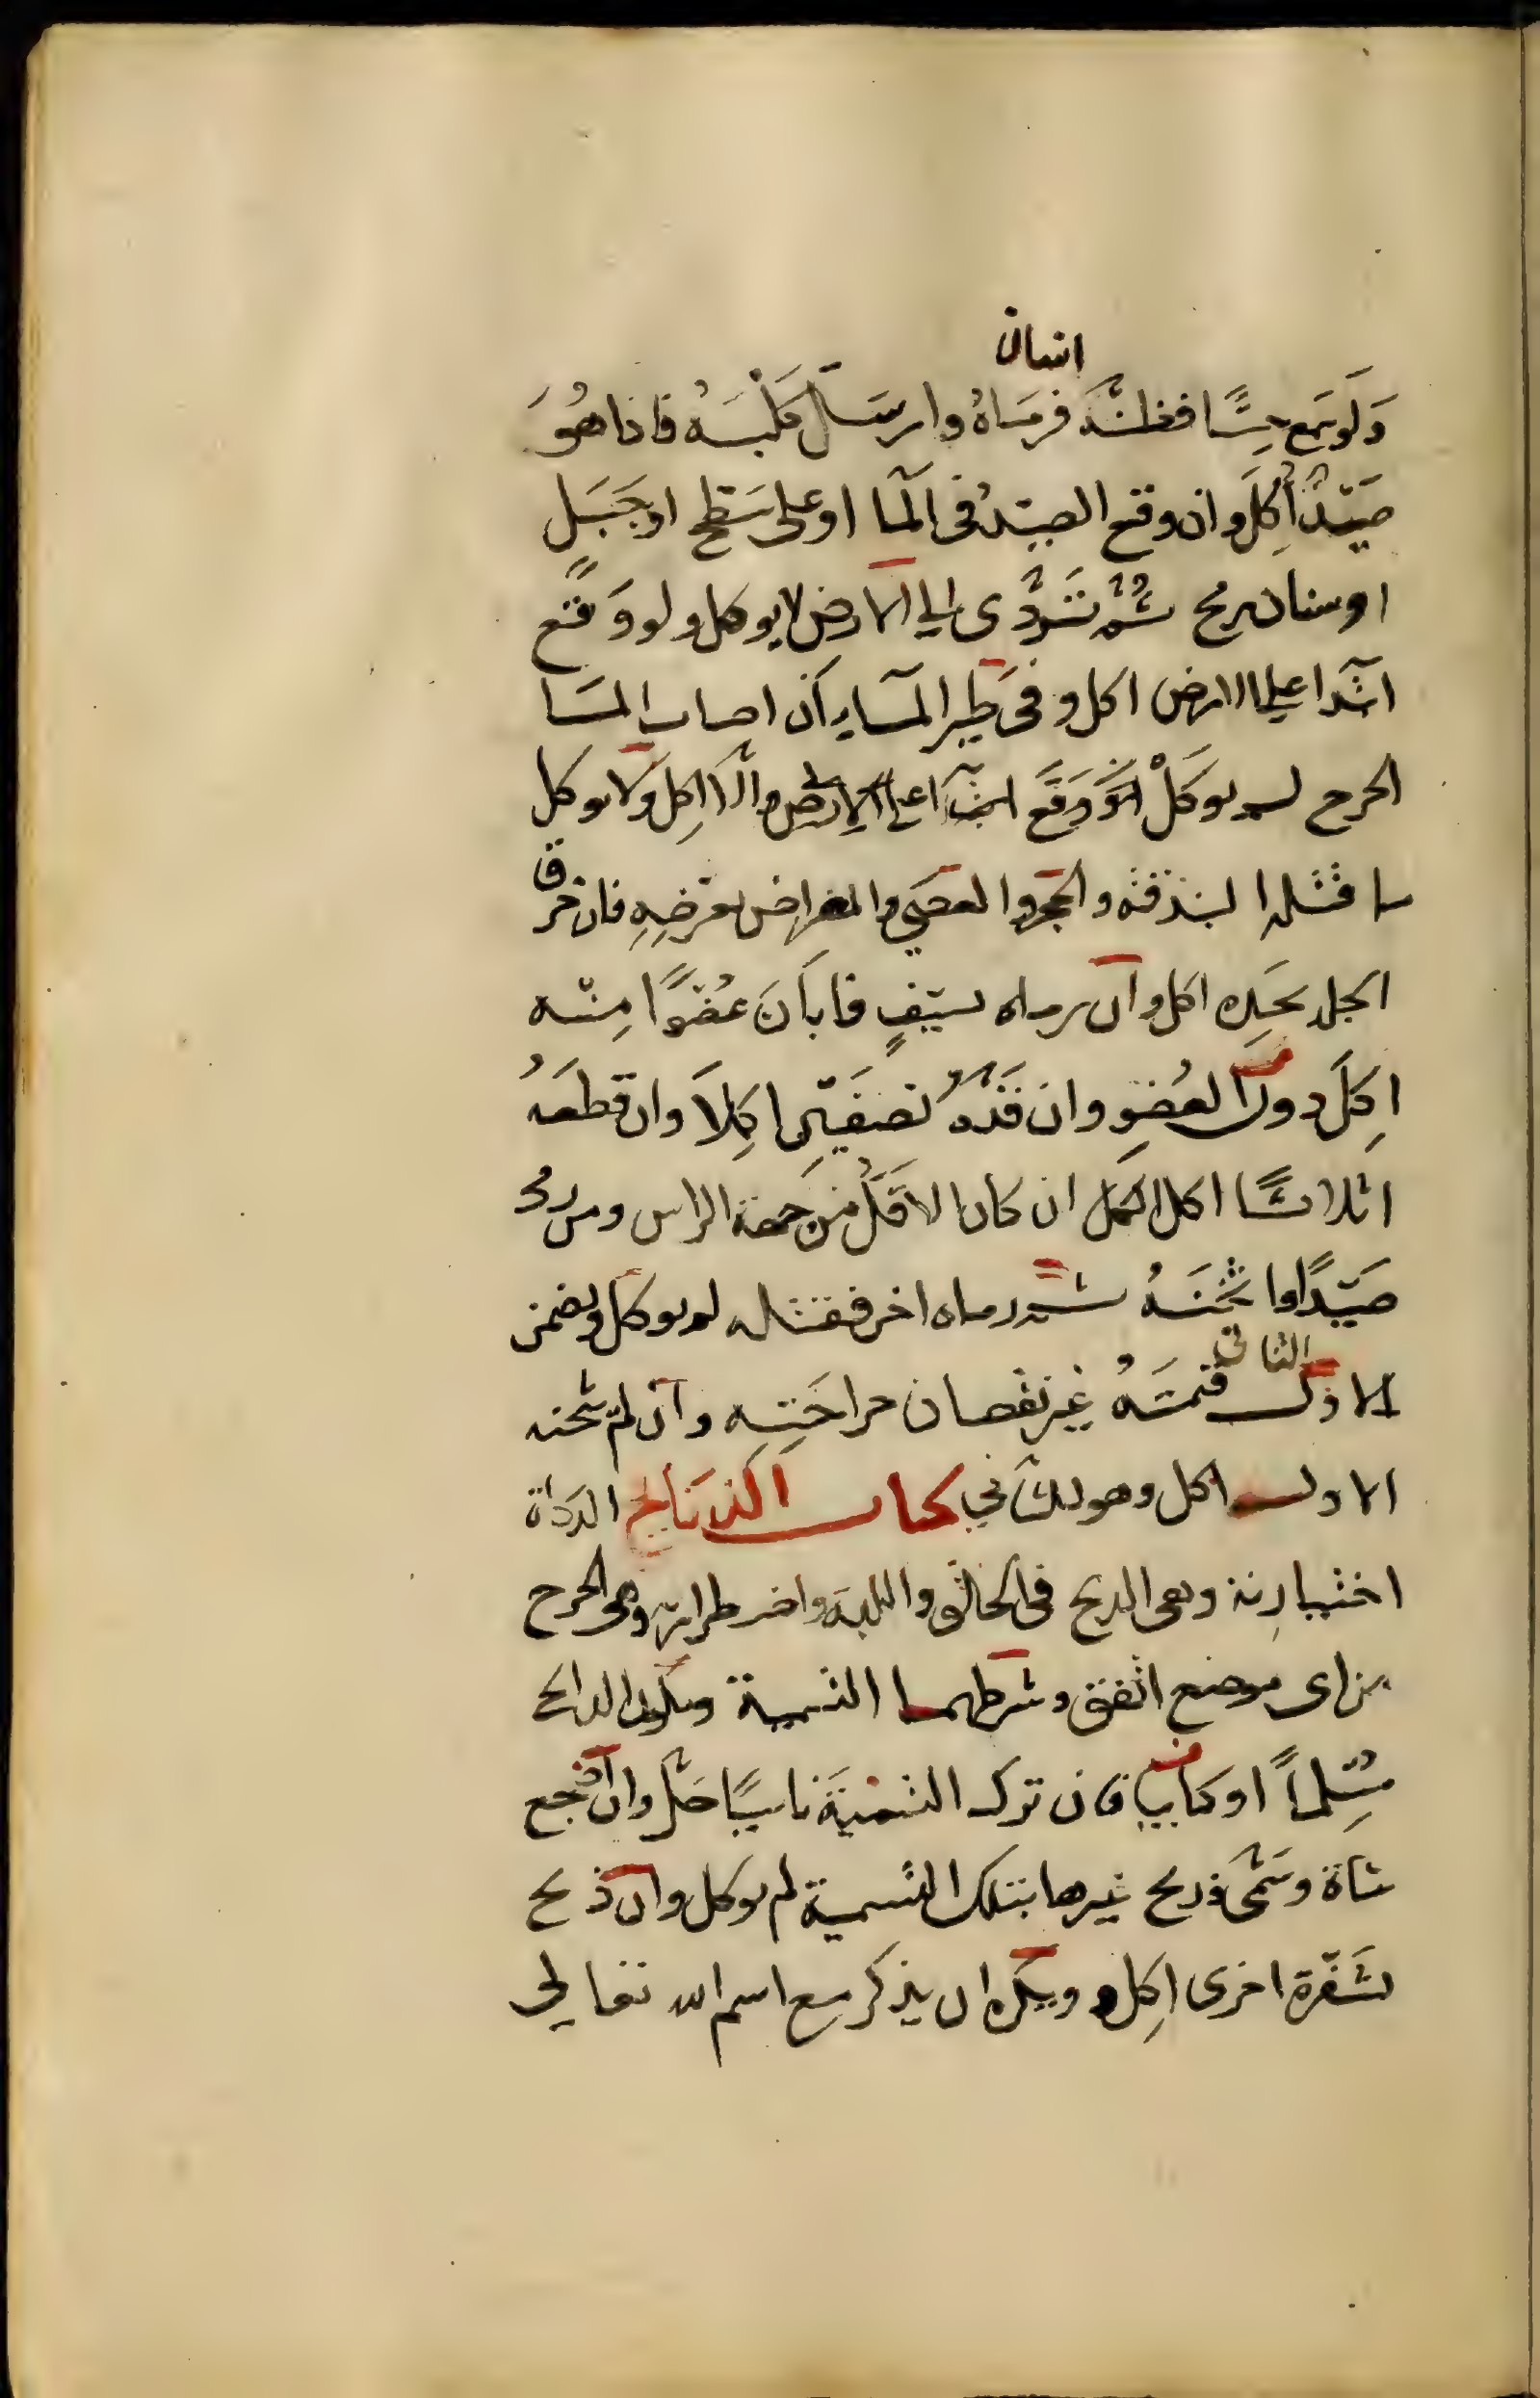 انسان
وَلَو سمع حِسًّا فظنه فرمَاهُ او ارسَل كَلْبَهُ فاذا هُوَ
صَيْدٌ اُكِلَ وان وقع الصيدُ فى المآ او على سَطح او جَبَلٍ
او سنان رمح ثم تَرَدَّى الى الارض لا يوكل ولو وَقَع
ابتدا على الارض اكل وفى طير المآء اِن اصاب المآ
الجرح لم يوكَلْ وَقَع ابتدآ على الارض والا اكل ولا يوكل
ما قتله البندقة والحجر والعصى والمعراض بعَرضِهِ فان خرق
الجلد بحَدِه اكل وان رماه بسَيفٍ فابَانَ عُضوًا مِنه
اكِلَ دون العُضوِ وان قَدَّهُ نصفَين اكِلاَ وان قطعَهُ
اثلاثًا اكل الكل ان كان الاقَلُّ من جهة الراس ومن رمى
صَيدًا واثخنَهُ ثم رماه اخر فقتله لم يوكل ويضمن
الثانى
للاول قيمتَهُ غير نقصان جراحَتِهِ وان لم يثخنه
الاول اكل وهو للثانى كتاب الذبَايح الذكاة
اختيارِية وهى الذبح فى الحلق واللبة واضطرارية وهى الجرح
من اى موضع اتفق وشرطهما التسمية وكون الذابح
مُسْلِماً او كتابيا فان ترك التسميَةَ ناسيًا حَلَّ وان اضجع
شاة وسَمَّى وذبح غيرها بتلك التسمية لم يوكل وان ذبح
بشَفرة اخرى اكِل ويكره ان يذكر مع اسم الله تعالى